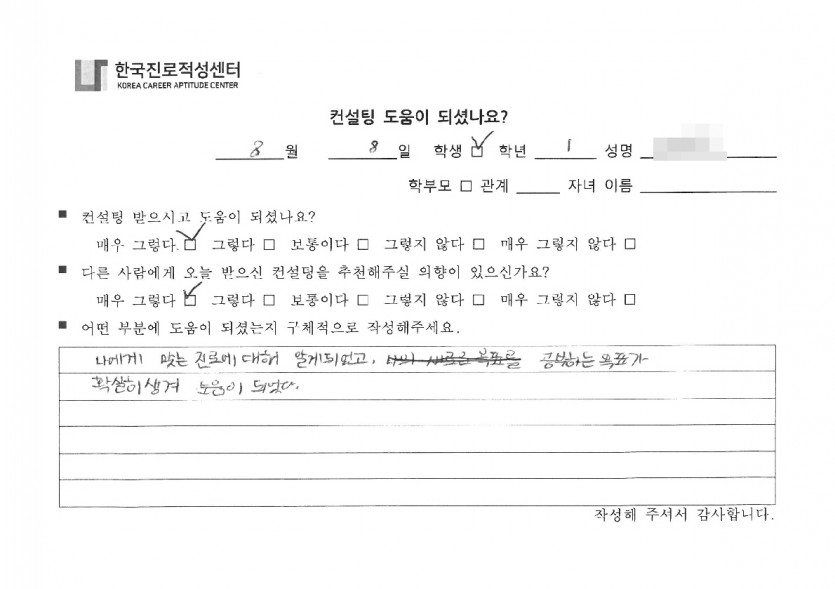 한국진로적성센터
KOREA CAREER APTITUDE CENTER
컨설팅 도움이 되셨나요?
8 월 8 일 학생 ☑ 학년 1 성명
학부모 □ 관계 자녀 이름
■ 컨설팅 받으시고 도움이 되셨나요?
매우 그렇다. ☑ 그렇다 □ 보통이다 □ 그렇지 않다 □ 매우 그렇지 않다 □
■ 다른 사람에게 오늘 받으신 컨설팅을 추천해주실 의향이 있으신가요?
매우 그렇다 ☑ 그렇다 □ 보통이다 □ 그렇지 않다 □ 매우 그렇지 않다 □
■ 어떤 부분에 도움이 되셨는지 구체적으로 작성해주세요.
나에게 맞는 진로에 대해 알게되었고, 공부하는 목표가
확실히 생겨 도움이 되었다.
작성해 주셔서 감사합니다.